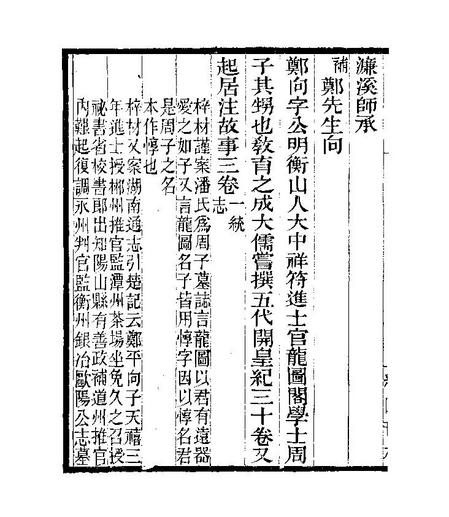 濂溪師承
補鄭先生向
鄭向字公明衡山人大中祥符進士官龍圖閣學士周
子其甥也敎育之成大儒嘗撰五代開皇紀三十卷又
起居注故事三卷一統志
梓材謹案潘氏爲周子墓誌言龍圖以君有遠器
愛之如子又言龍圖名子皆用惇字因以惇名君
是周子之名
本作惇也
梓材又案湖南通志引楚記云鄭平向子天禧三
年進士授郴州推官監潭州茶場坐免久之召授
祕書省校書郞出知陽山縣有善政補道州推官
內艱起復調永州判官監衡州銀冶歐陽公志墓